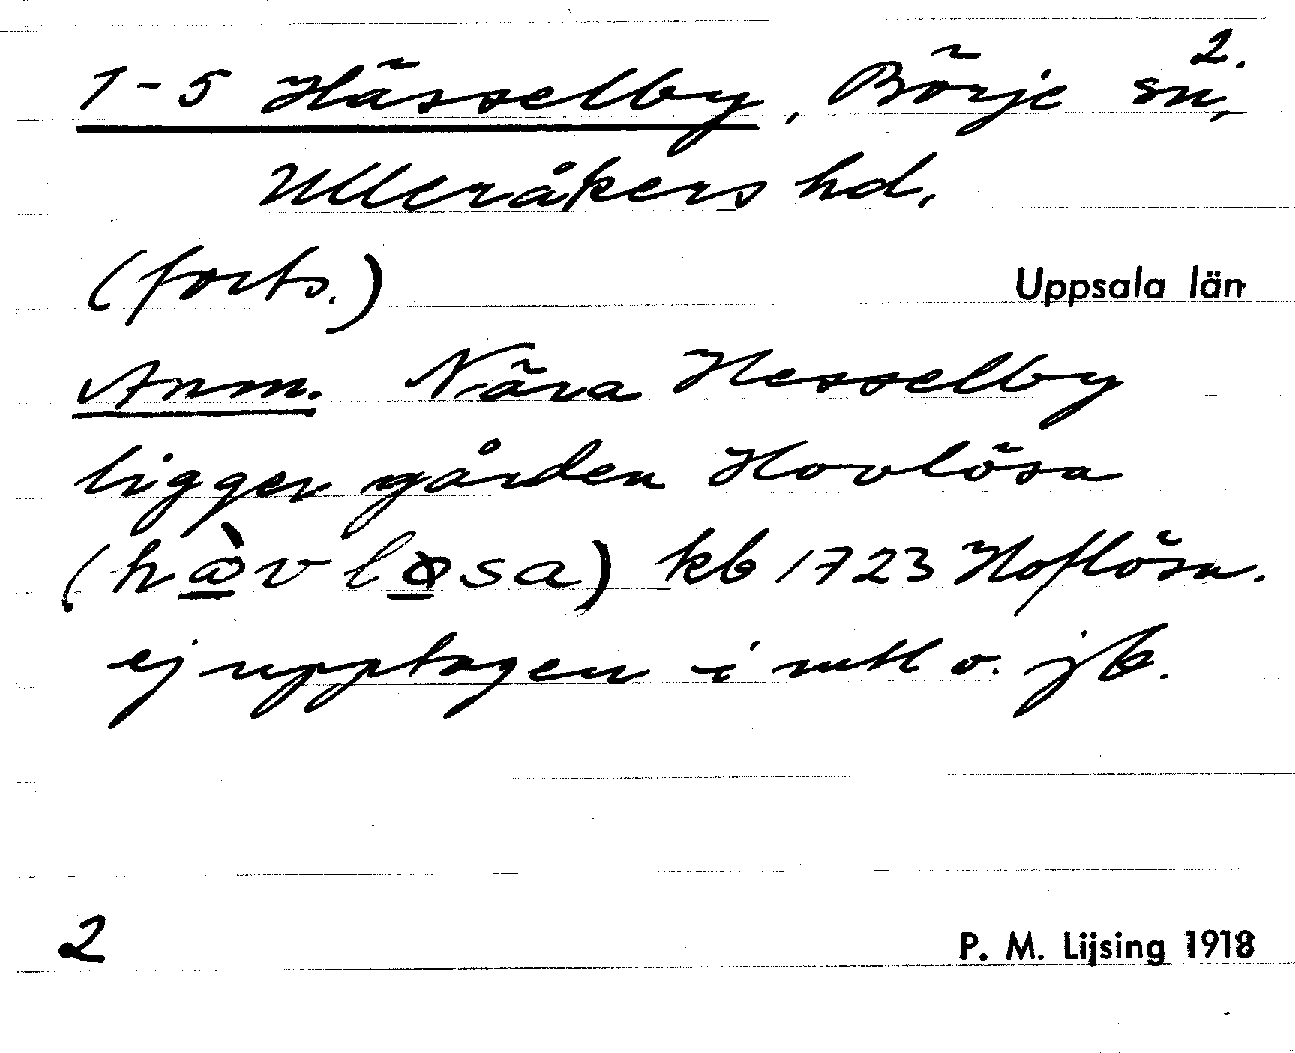 2.
1-5 Hässelby, Börje sn,
Ulleråkers hd.
(forts.)
Uppsala län
Anm. Nära Hesselby
ligger gården Hovlösa
(hàvløsa) kb 1723 Hoflösa.
ej upptagen i mtl o. jb.
2
P. M. Lijsing 1918